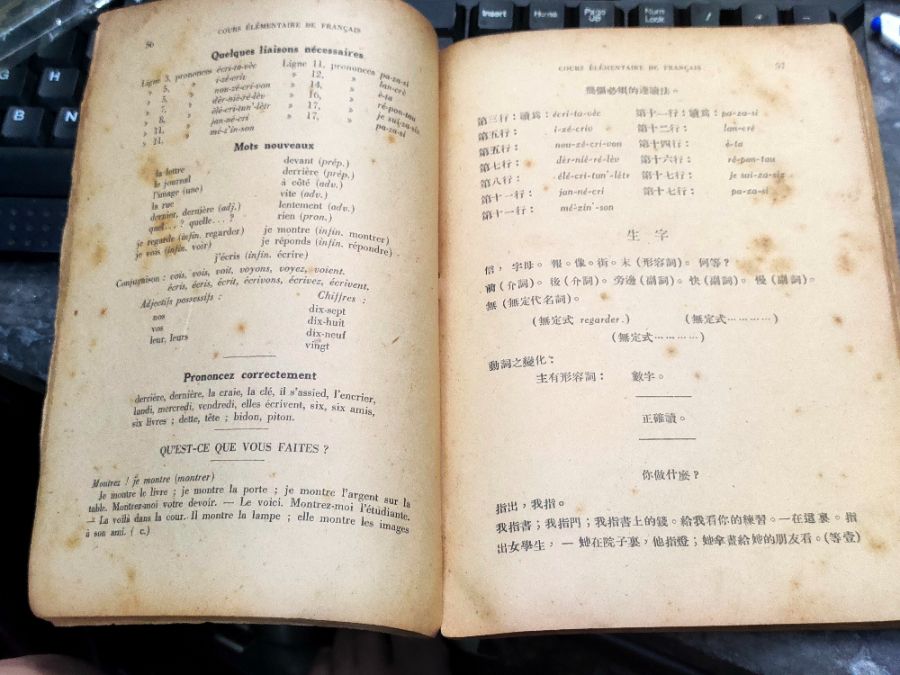 Insert
Home
Page
UP
Num
Lock
/
G
H
B
N
56
COURS ÉLÉMENTAIRE DE FRANÇAIS
Quelques liaisons nécessaires
Ligne 3, prononcez écri-ta-vèc Ligne 11, prononcez pa-za-si
» 5, » i-zé-criv » 12, » lan-cré
» 5, » nou-zé-cri-von » 14, » è-ta
» 7, » dèr-niè-ré-lèv » 16, » ré-pon-tau
» 8, » élé-cri-tun'-lètr » 17, » je sui-za-siz
» 11, » jan-né-cri » 17, » pa-za-si
» 11, » mé-z'in-son
Mots nouveaux
la lettre devant (prép.)
le journal derrière (prép.)
l'image (une) à côté (adv.)
la rue vite (adv.)
dernier, dernière (adj.) lentement (adv.)
quel...? quelle...? rien (pron.)
je regarde (infin. regarder) je montre (infin. montrer)
je vois (infin. voir) je réponds (infin. répondre)
j'écris (infin. écrire)
Conjugaison : vois, vois, voit, voyons, voyez, voient.
écris, écris, écrit, écrivons, écrivez, écrivent,
Adjectifs possessifs : Chiffres :
nos dix-sept
vos dix-huit
leur, leurs dix-neuf
vingt
Prononcez correctement
derrière, dernière, la craie, la clé, il s'assied, l'encrier,
lundi, mercredi, vendredi, elles écrivent, six, six amis,
six livres ; dette, tête ; bidon, piton.
QU'EST-CE QUE VOUS FAITES ?
Montrez ! je montre (montrer)
Je montre le livre ; je montre la porte ; je montre l'argent sur la
table. Montrez-moi votre devoir. — Le voici. Montrez-moi l'étudiante.
— La voilà dans la cour. Il montre la lampe ; elle montre les images
à son ami. ( c.)
COURS ÉLÉMENTAIRE DE FRANÇAIS 57
幾個必須的連讀法。
第三行：讀爲：écri-ta-vèc 第十一行：讀爲：pa-za-si
第五行： i-zé-criv 第十二行： lan-cré
第五行： nou-zé-cri-von 第十四行： è-ta
第七行： dèr-niè-ré-lèv 第十六行： ré-pon-tau
第八行： élé-cri-tun'-lètr 第十七行： je sui-za-siz
第十一行： jan-né-cri 第十七行： pa-za-si
第十一行： mé-zin'-son
生字
信，字母。報。像。街。末（形容詞）。何等？
前（介詞）。後（介詞）。旁邊（副詞）。快（副詞）。慢（副詞）。
無（無定代名詞）。
（無定式 regarder.） （無定式…………）
（無定式…………）
動詞之變化：
主有形容詞： 數字。
正確讀。
你做什麼？
指出，我指。
我指書；我指門；我指書上的錢。給我看你的練習。—在這裏。指
出女學生，— 她在院子裏，他指燈；她拿畫給她的朋友看。（等壹）